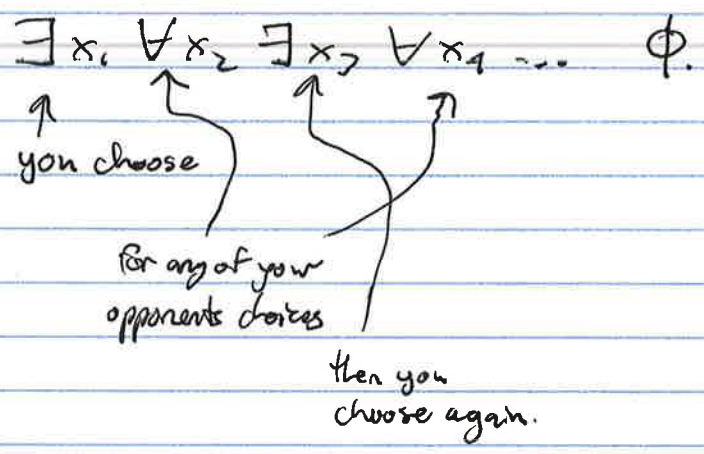 ∃x₁ ∀x₂ ∃x₃ ∀x₄ ... ϕ.
you choose
for any of your
opponents choices
then you
choose again.